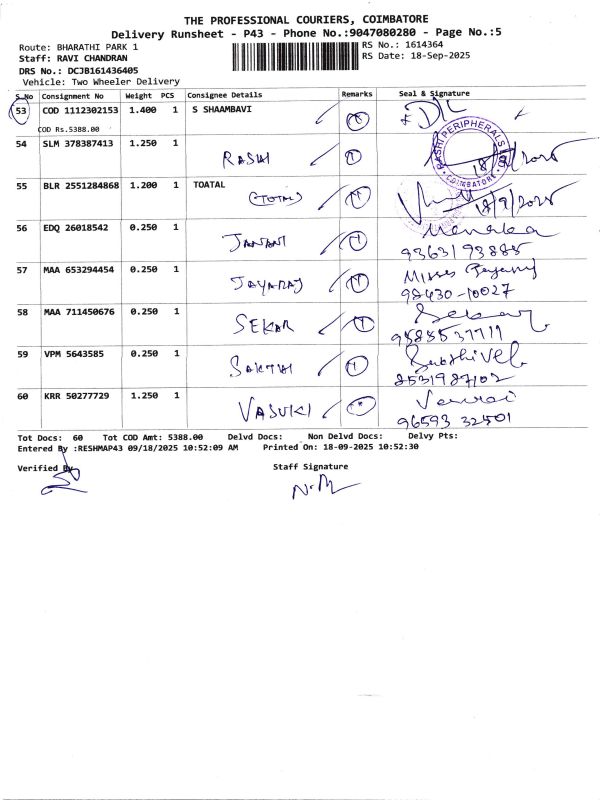 THE PROFESSIONAL COURIERS, COIMBATORE
Delivery Runsheet - P43 - Phone No.:9047080280 - Page No.:5
Route: BHARATHI PARK 1 RS No.: 1614364
Staff: RAVI CHANDRAN RS Date: 18-Sep-2025
DRS No.: DCJB161436405
Vehicle: Two Wheeler Delivery
S.No Consignment No Weight PCS Consignee Details Remarks Seal & Signature
53 COD 1112302153 1.400 1 S SHAAMBAVI
COD Rs.5388.00
54 SLM 378387413 1.250 1 RASHI RASHI PERIPHERALS COIMBATORE
55 BLR 2551284868 1.200 1 TOATAL
(TOTAL) 18/9/2025
56 EDQ 26018542 0.250 1 JANANI Menaka
9363193885
57 MAA 653294454 0.250 1 JAYARAJ Misses
98430-10027
58 MAA 711450676 0.250 1 SEKAR Sekar
59 VPM 5643585 0.250 1 SAKTHI Sakthivel
8531987102
60 KRR 50277729 1.250 1 VASUKI
96593 32501
Tot Docs: 60 Tot COD Amt: 5388.00 Delvd Docs: Non Delvd Docs: Delvy Pts:
Entered By :RESHMAP43 09/18/2025 10:52:09 AM Printed On: 18-09-2025 10:52:30
Verified By Staff Signature